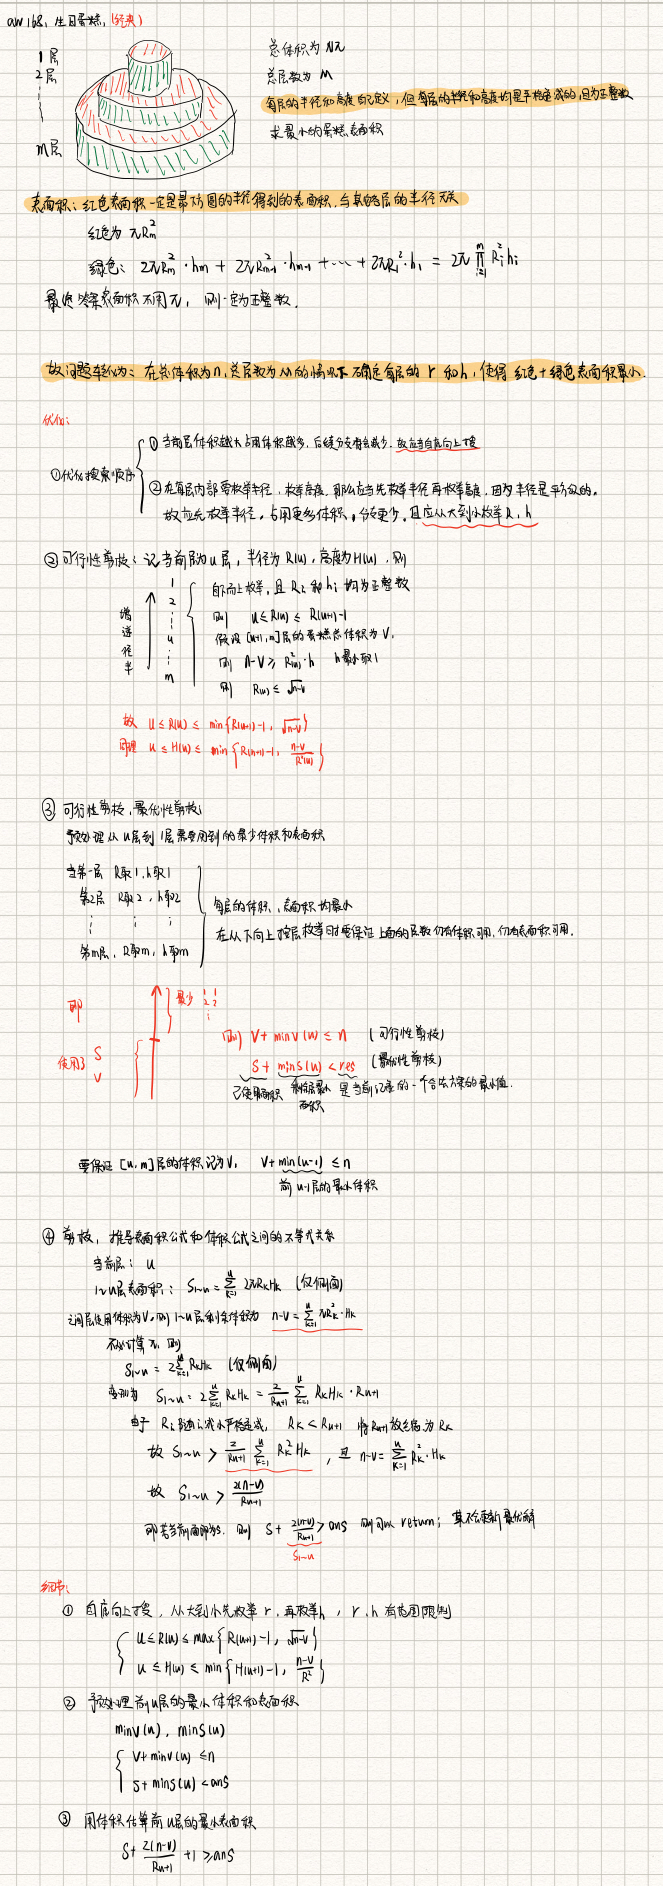 acw 168, 生日蛋糕, (经典)
1层
2层
m层
总体积为 Nπ
总层数为 M
每层的半径和高度自己定义, 但每层的半径和高度均是严格递减的, 且为正整数
求最小的蛋糕表面积
表面积: 红色表面积一定是最下方圆的半径得到的表面积, 与其他各层的半径无关
红色为 πR²m
绿色: 2πR²m·hm + 2πR²m-1·hm-1 + ... + 2πR²1·h1 = 2π ∏(i=1→m) R²i hi
最后答案表面积不用π, 则一定为正整数.
故问题转化为: 在总体积为n, 总层数为M的情况下 确定每层的 r 和 h, 使得 红色+绿色表面积最小.
优化:
①优化搜索顺序
① 当前层体积越大占用体积越多, 后续分支会减少. 故应当自底向上搜
② 在每层内部需枚举半径, 枚举高度, 那么应当先枚举半径再枚举高度, 因为半径是平方级的。
故应先枚举半径, 占用更多体积, 分支更少, 且应从大到小枚举 R, h
② 可行性剪枝: 记当前层为u层, 半径为 R(u), 高度为H(u), 则
增
递
径
半
1
2
u
m
自下而上枚举, 且 Ri 和 hi 均为正整数
则 u ≤ R(u) ≤ R(u+1)-1
假设 [u+1, m]层的蛋糕总体积为 V,
则 n-V ≥ R²(u)·h h最小取1
则 R(u) ≤ √n-v
故 u ≤ R(u) ≤ min{R(u+1)-1, √n-v}
同理 u ≤ H(u) ≤ min{R(u+1)-1, n-v/R²(u)}
③ 可行性剪枝, 最优性剪枝;
预处理从u层到1层需要用到的最少体积和表面积
当第一层 R取1, h取1
第2层 R取2, h取2
第m层, R取m, h取m
每层的体积, 表面积均最小
在从下向上搜层枚举时要保证上面的层数仍有体积可用, 仍有表面积可用.
即
最少 1 1
2 2
使用了 S
V
则 V + minv(u) ≤ n (可行性剪枝)
S + mins(u) < res (最优性剪枝)
已使用面积 剩余层最小面积 是当前记录的一个合法方案的最小值.
要保证 [u, m]层的体积记为V, V + min(u-1) ≤ n
前u-1层的最小体积
④ 剪枝, 推导表面积公式和体积公式之间的不等式关系
当前层: u
1~u层表面积: S1~u = ∑(k=1→u) 2πRkHk (仅侧面)
之间层使用体积为V, 则1~u层剩余体积为 n-v = ∑(k=1→u) πR²k·Hk
不处计算π, 则
S1~u = 2∑(k=1→u) RkHk (仅侧面)
变形为 S1~u = 2∑(k=1→u) RkHk = 2/Ru+1 ∑(k=1→u) RkHk·Ru+1
由于 Ri 随i减小严格递减, Rk < Ru+1 将Ru+1放缩为Rk
故 S1~u > 2/Ru+1 ∑(k=1→u) R²k Hk, 且 n-v = ∑(k=1→u) R²k·Hk
故 S1~u > 2(n-v)/Ru+1
即若当前面积为S, 则 S + 2(n-v)/Ru+1 > ans 则可以 return; 其不会更新最优解
S1~u
细节:
① 自底向上搜, 从大到小先枚举 r, 再枚举h, r, h 有范围限制
u ≤ R(u) ≤ max{R(u+1)-1, √n-v}
u ≤ H(u) ≤ min{H(u+1)-1, n-v/R²}
② 预处理前u层的最小体积和表面积
minv(u), mins(u)
V + minv(u) ≤ n
S + mins(u) < ans
③ 用体积估算前u层的最小表面积
S + 2(n-v)/Ru+1 +1 ≥ ans